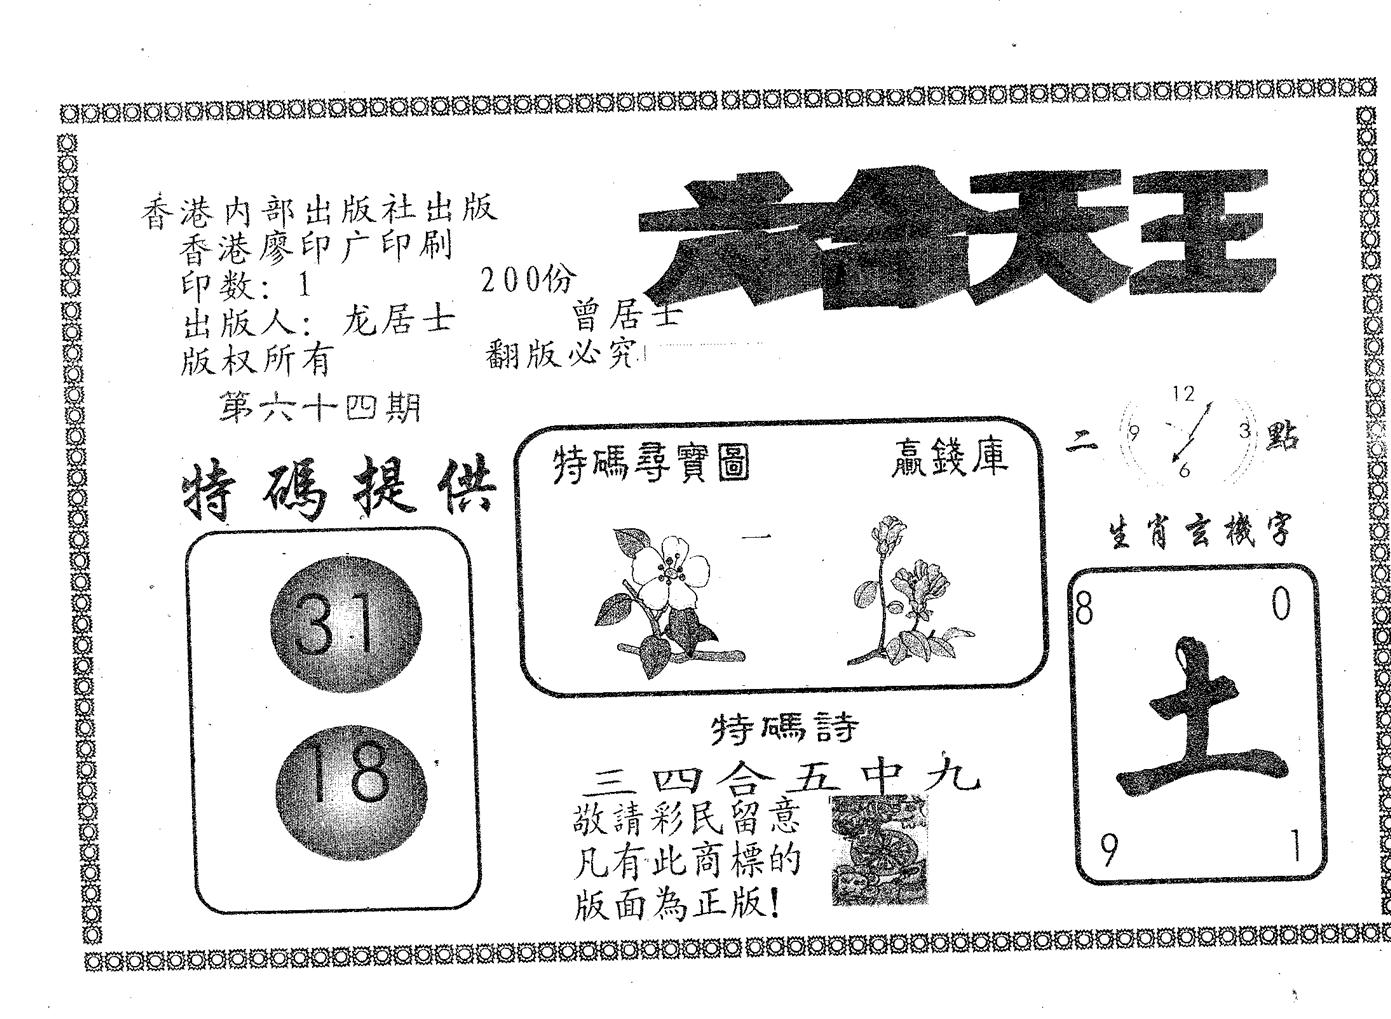 六合天王
香港内部出版社出版
香港廖印广印刷
印数: 1 200份
出版人: 龙居士 曾居士
版权所有 翻版必究
第六十四期
特碼提供
31
18
特碼尋寶圖 贏錢庫
一
特碼詩
三四合五中九
敬請彩民留意
凡有此商標的
版面為正版!
二 點
12
9 3
6
生肖玄機字
8 0
土
9 1